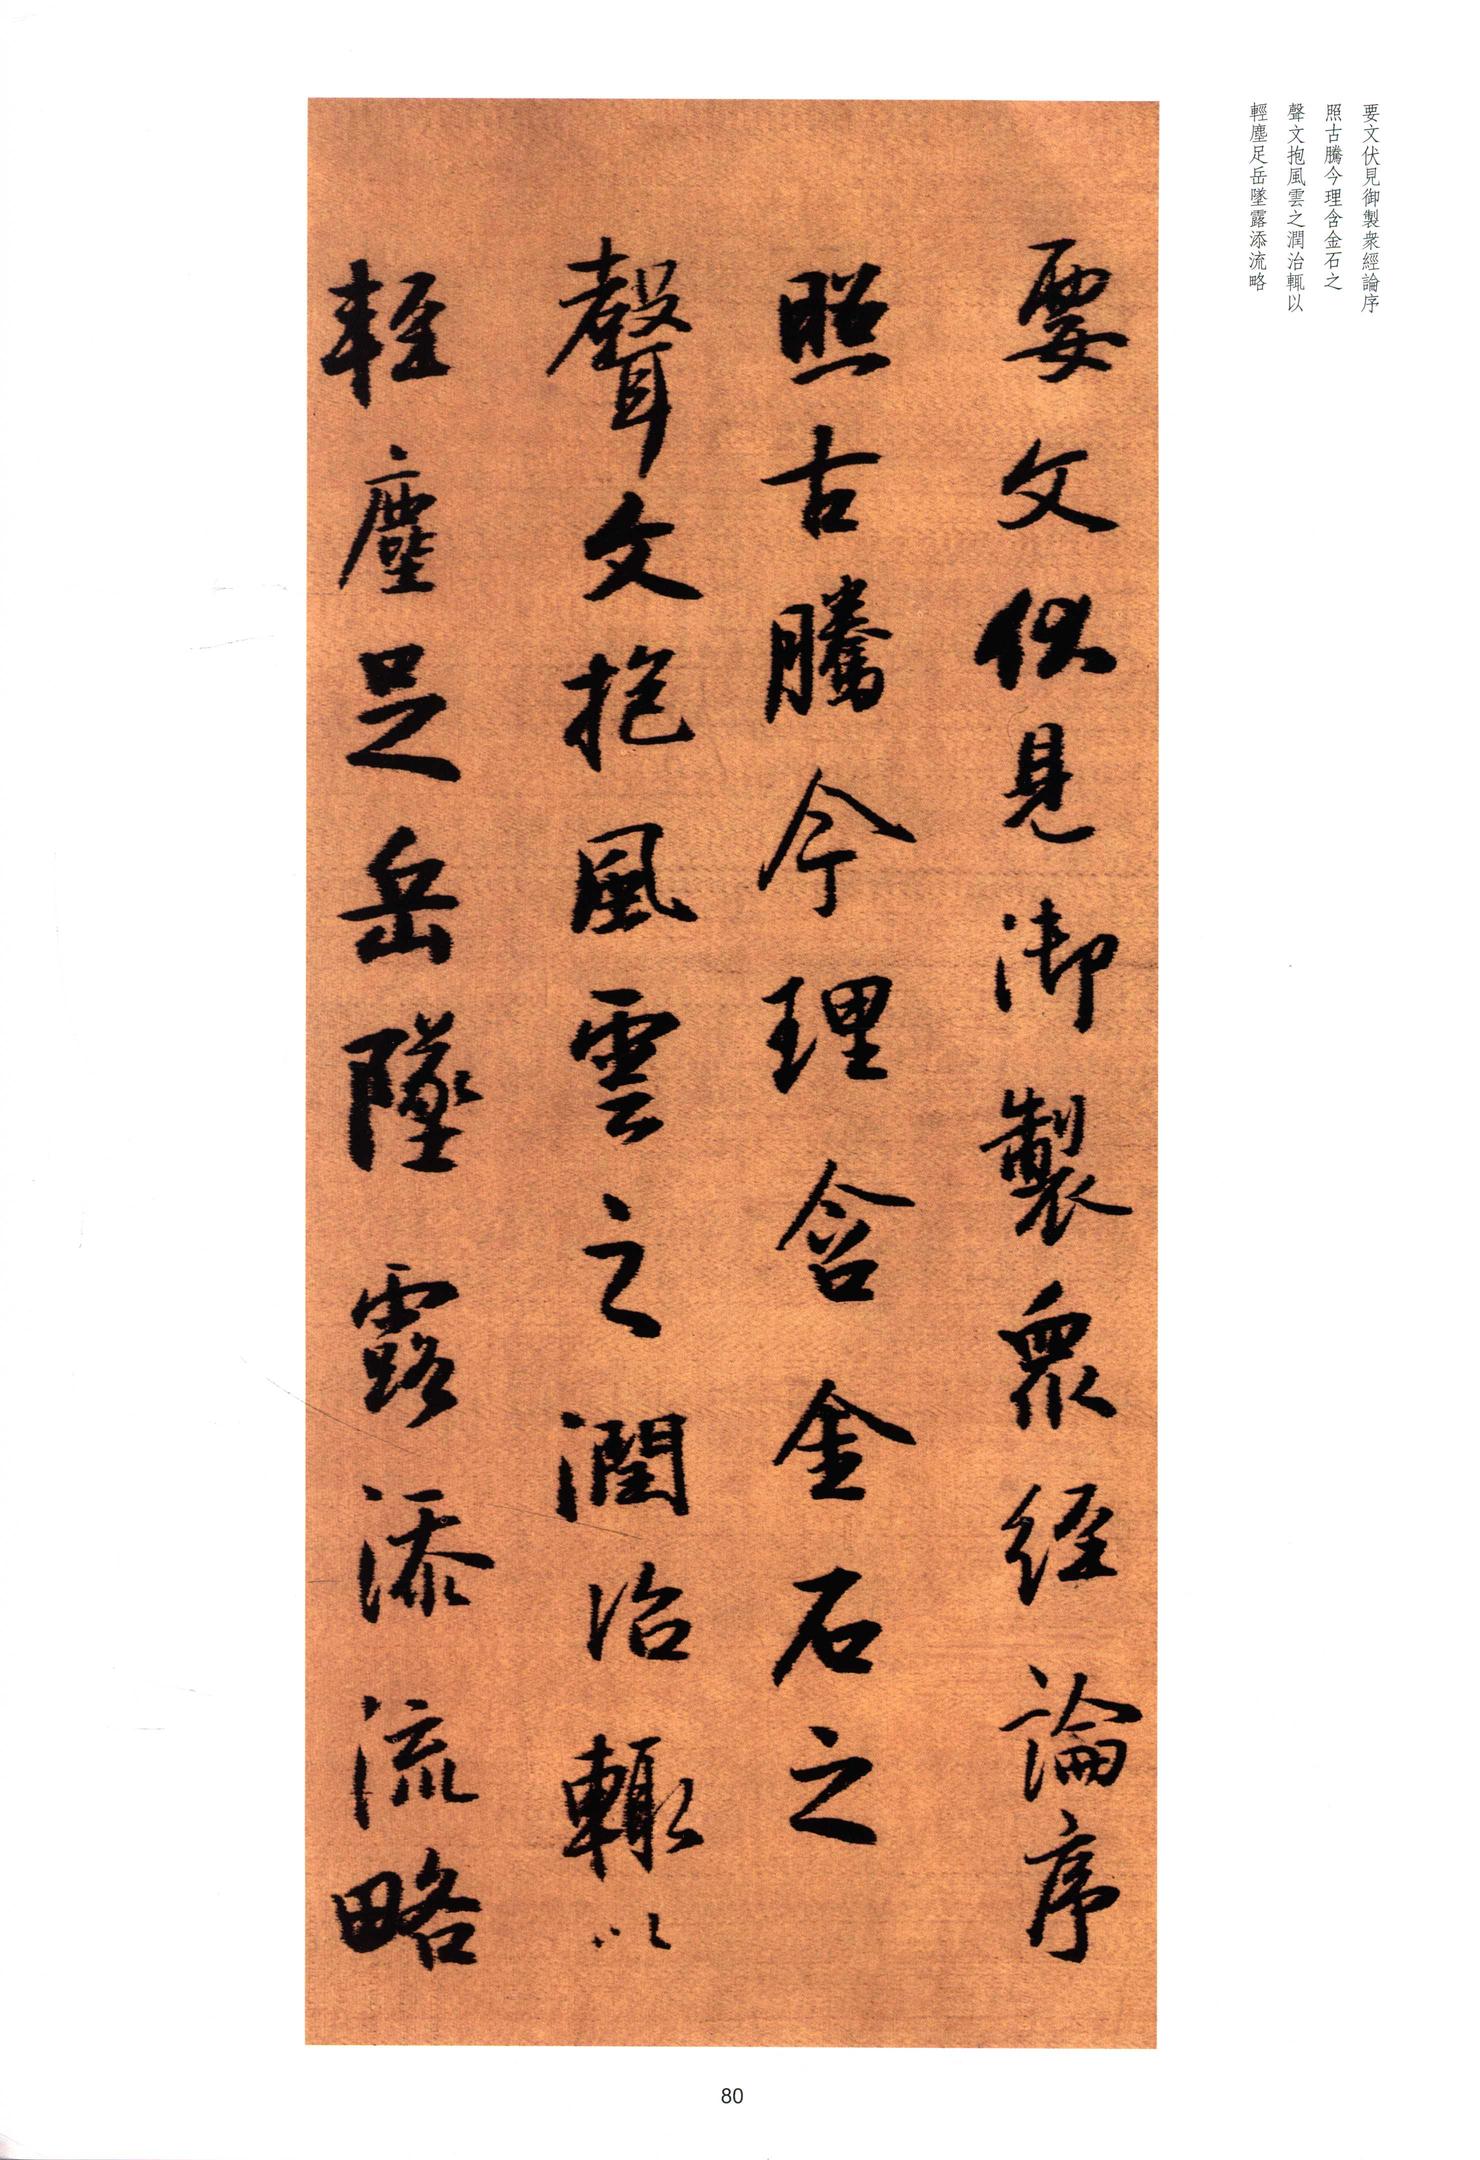 要文伏見御製衆經論序
照古騰今理含金石之
聲文抱風雲之潤治輒以
輕塵足岳墜露添流略
要文伏見御製衆經論序
照古騰今理含金石之
聲文抱風雲之潤治輒以
輕塵足岳墜露添流略
80